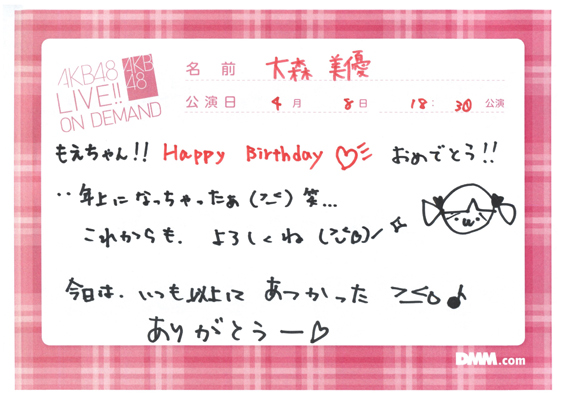 AKB48
LIVE!!
ON DEMAND
AKB
48
名 前 大森 美優
公演日 4月 8日 18:30 公演
もえちゃん!! Happy Birthday♡ おめでとう!!
‥年上になっちゃったぁ(>_<)笑…
これからも、よろしくね(>_<o)/☆
今日は、いつも以上に あつかった >_<o♪
ありがとうー♡
DMM.com